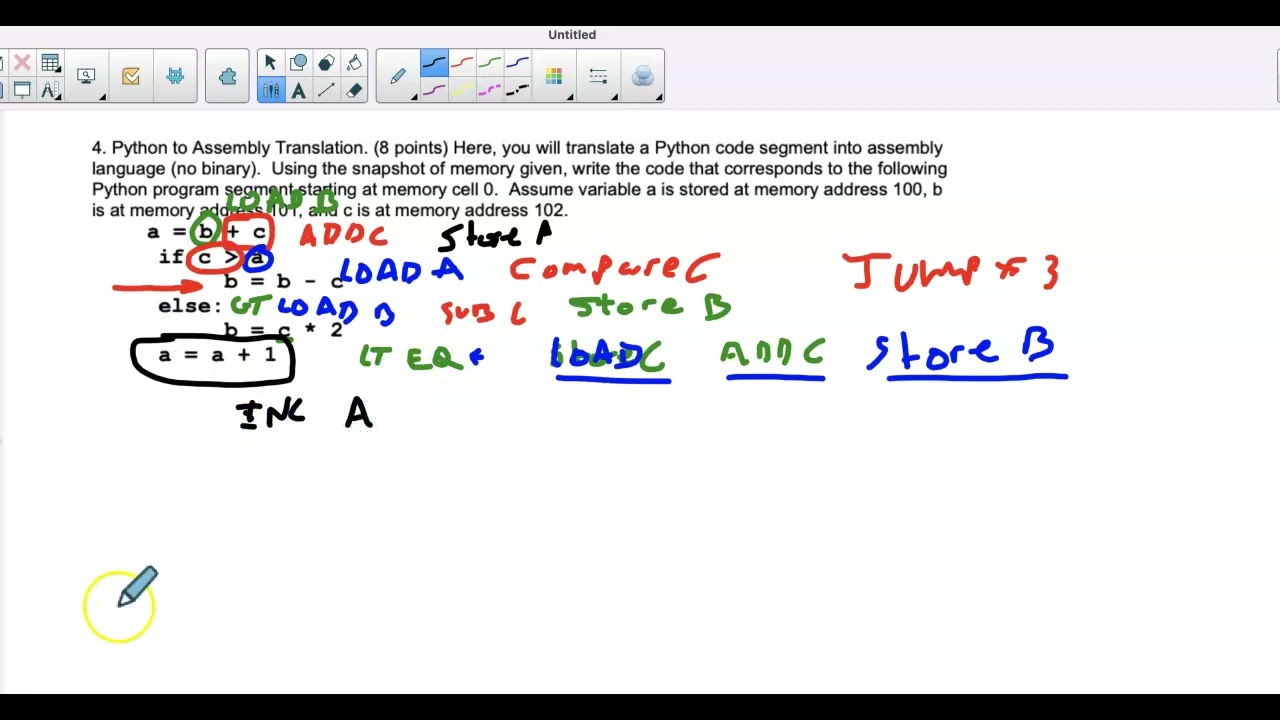 Untitled
4. Python to Assembly Translation. (8 points) Here, you will translate a Python code segment into assembly
language (no binary). Using the snapshot of memory given, write the code that corresponds to the following
Python program segment starting at memory cell 0. Assume variable a is stored at memory address 100, b
LOAD B
is at memory address 101, and c is at memory address 102.
a = b + c ADD C Store A
if c > a LOAD A Compare C Jump * 3
b = b - c
else: GT LOAD B SUB C Store B
b = c * 2
a = a + 1 LT EQ LOAD C ADD C Store B
INC A